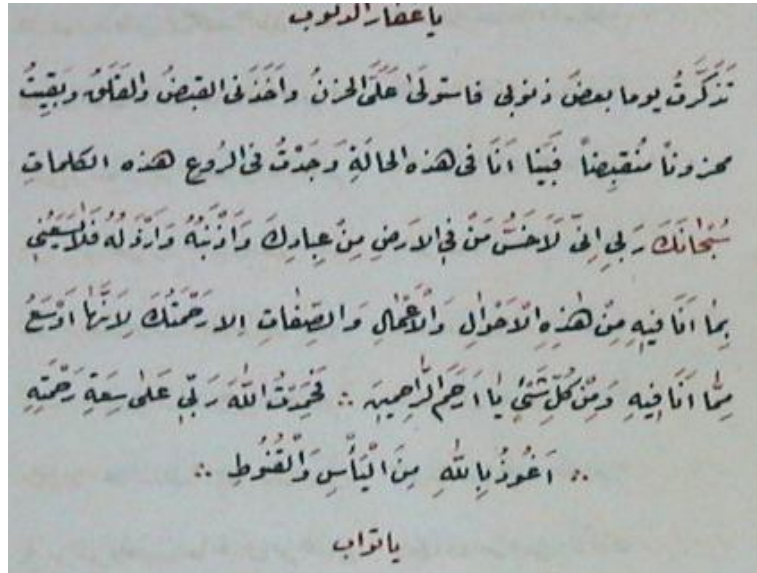 يا غفار الذنوب
تَذَكَّرتُ يوما بعضَ ذنوبى فاستولىٰ عَلَىَّ الحزنُ واَخَذَنى القبضُ والقَلَقُ وبَقِيتُ
محزوناً مُنقبِضاً فَبَينا اَنَا فى هذه الحالَةِ وَجَدْتُ فى الرُوعِ هذه الكلماتِ
سُبْحَانَكَ رَبىِ اِنىِّ لَاَخَسُّ مَنْ فِى الارَضِ مِنْ عِبادِكَ وَاَذْنَبُهُ وَاَرْذَلُهُ فَلٰا يَسَعُنىِ
بِمٰا اَنَا فيهِ مِنْ هٰذِهِ الْاَحْوٰالِ وَالْاَعْمٰالِ وَالصِفٰاتِ اِلا رَحْمَتُكَ لِاَنَّهٰا اَوْسَعُ
مِمّٰا اَنَا فِيهِ وَمِنْ كُلِّ شَئٍ يٰا اَرْحَمَ الرّٰاحِمِينَ ∴ فَحَمِدْتُ اللّٰهَ رَبّىِ عَلىٰ سِعَةِ رَحْمَتِهِ
∴ اَعُوذُ بِاللّٰهِ مِنَ الْيَأْسِ وَالْقُنُوطِ ∴
يا تواب